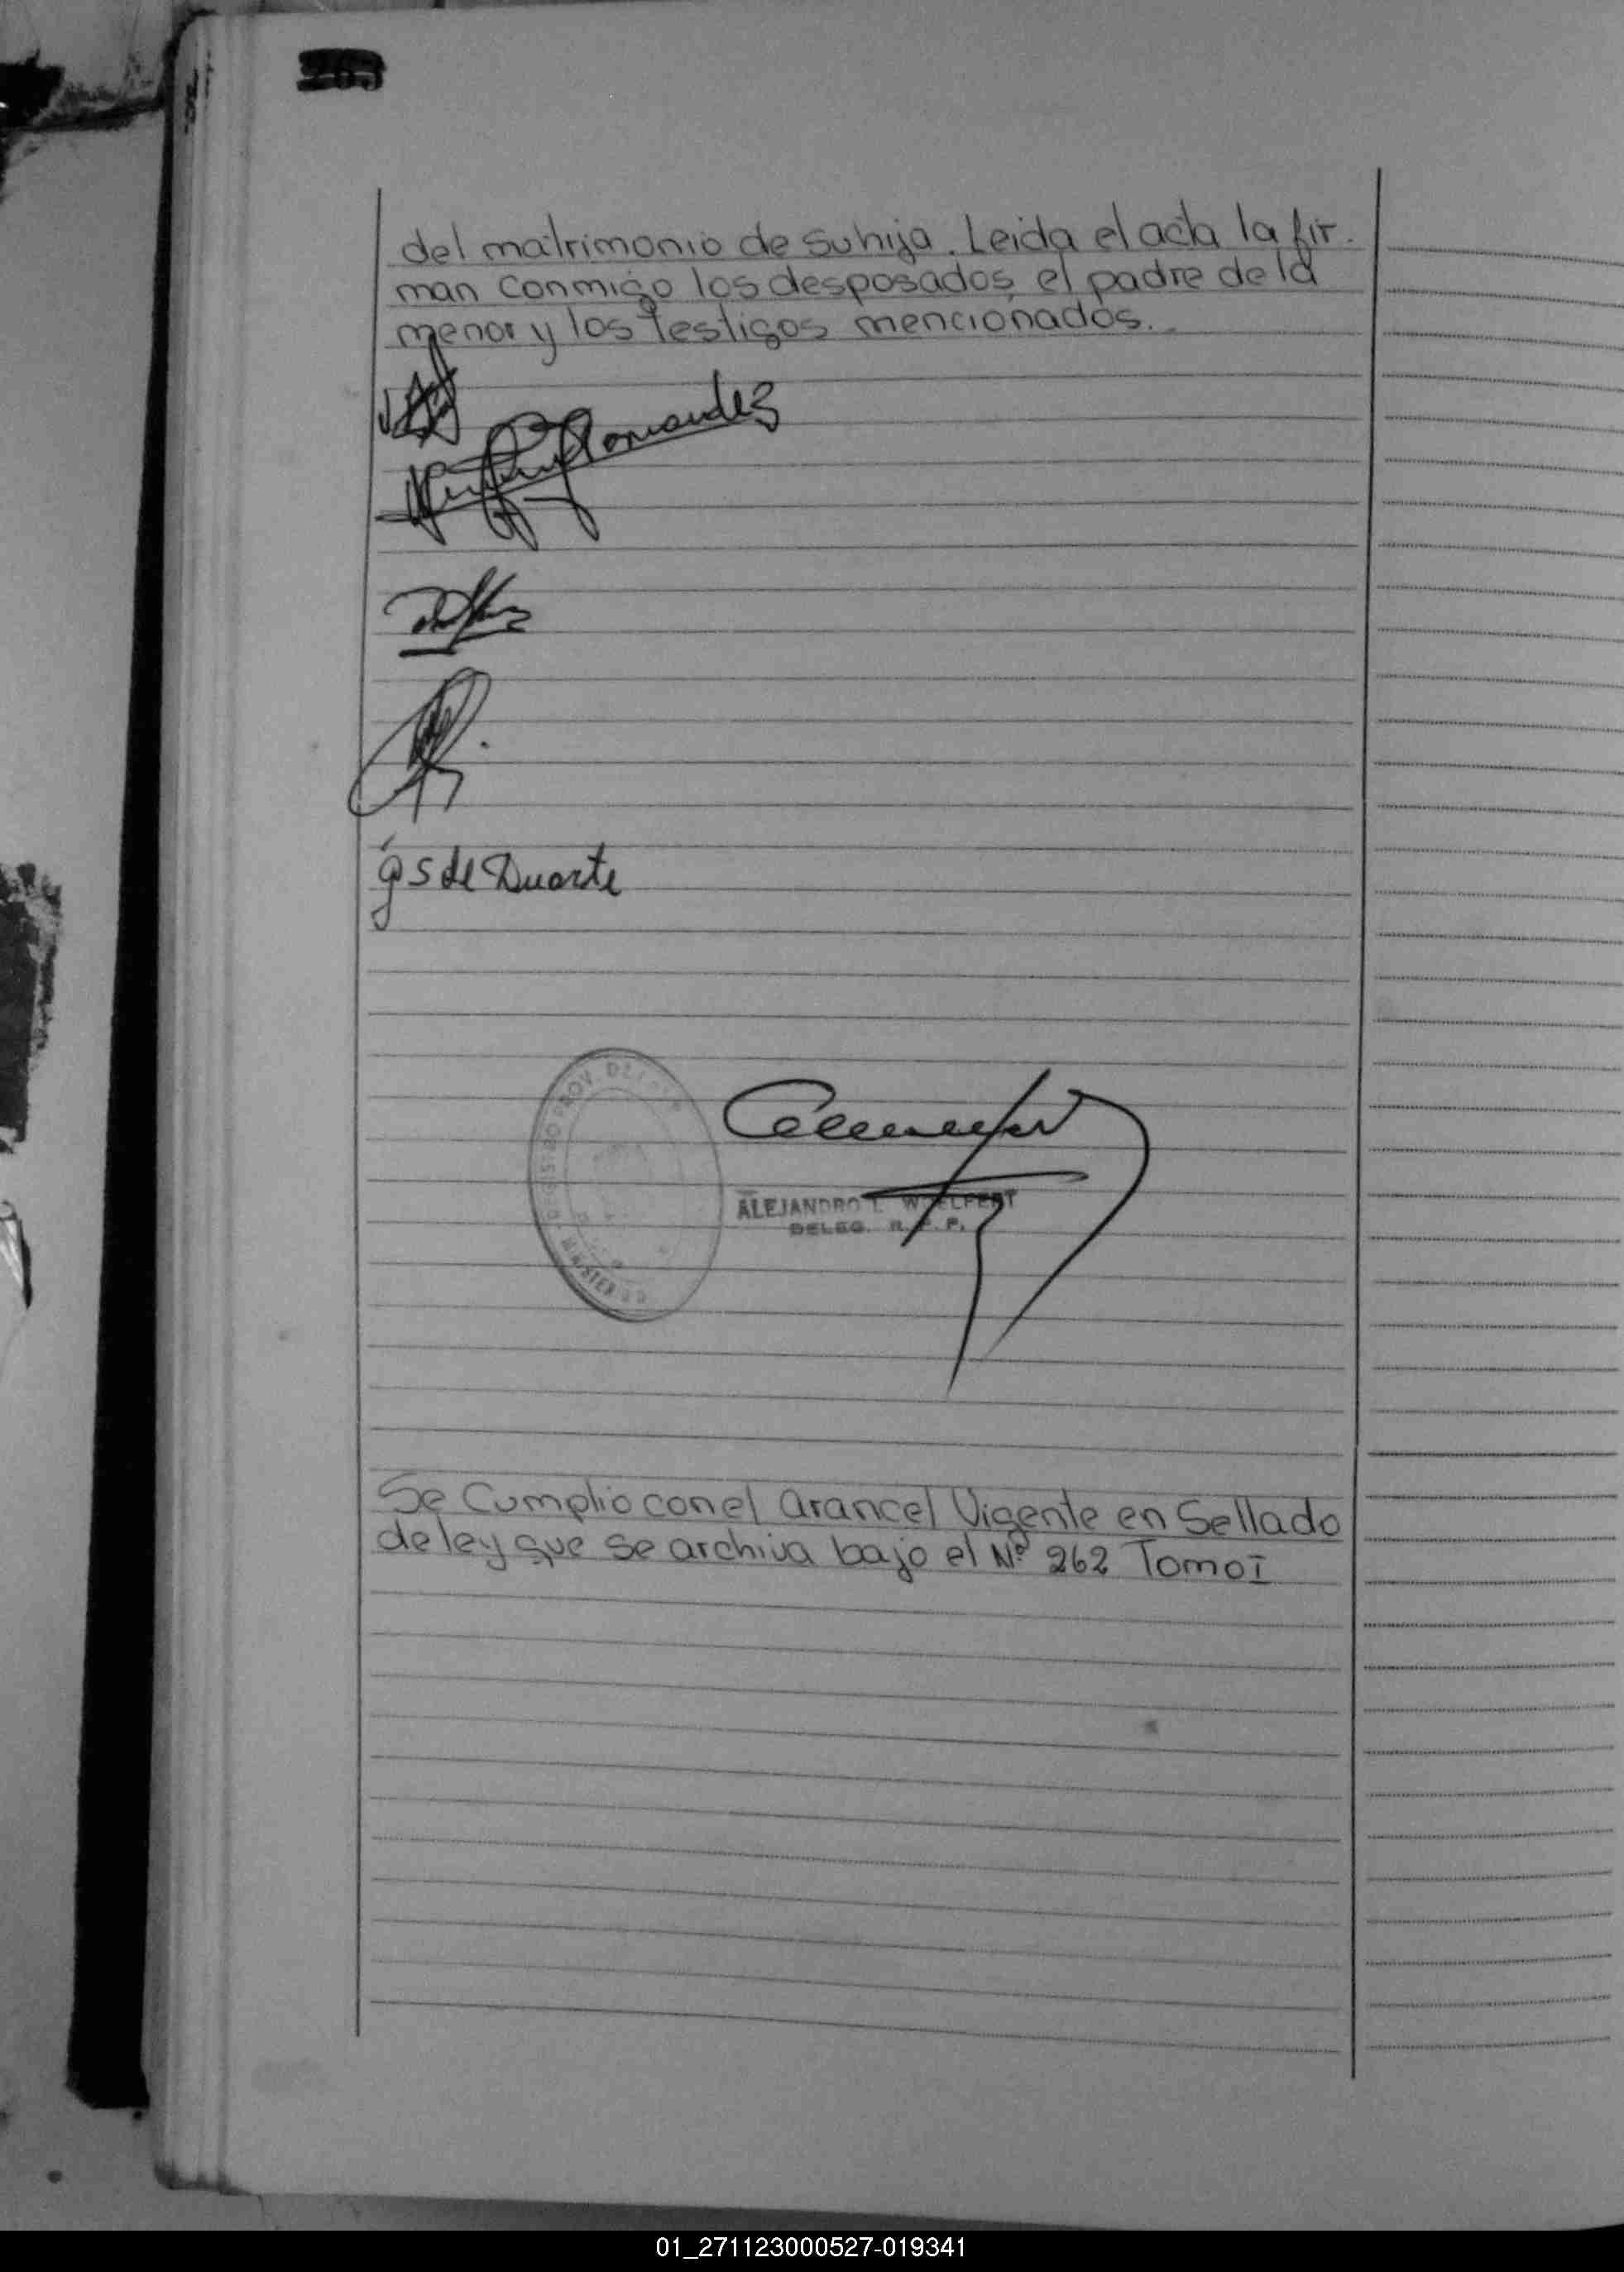 263
del matrimonio de su hija. Leida el acta la fir-
man conmigo los desposados, el padre de la
menor y los testigos mencionados.
Fernandez
G S de Duarte
ALEJANDRO L. WOELFERT
DELEG. R. P. P.
Se Cumplio con el arancel Vigente en Sellado
de ley que se archiva bajo el Nº 262 Tomo I
01_271123000527-019341